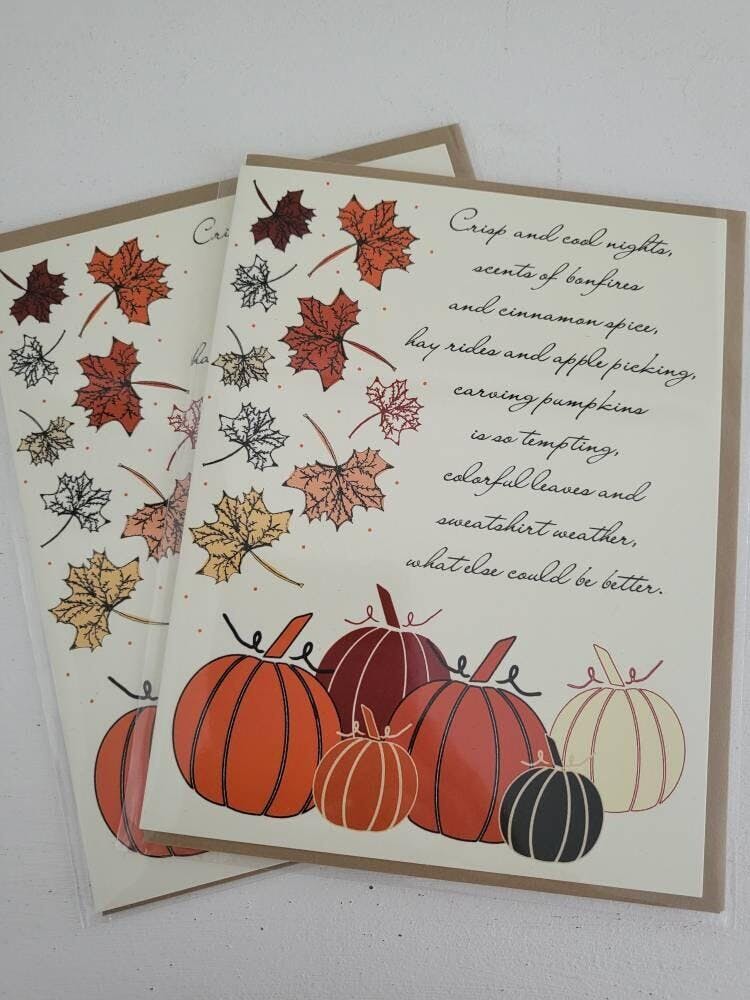 Crisp and cool nights,
scents of bonfires
and cinnamon spice,
hay rides and apple picking,
carving pumpkins
is so tempting,
colorful leaves and
sweatshirt weather,
what else could be better.
Cri
ha